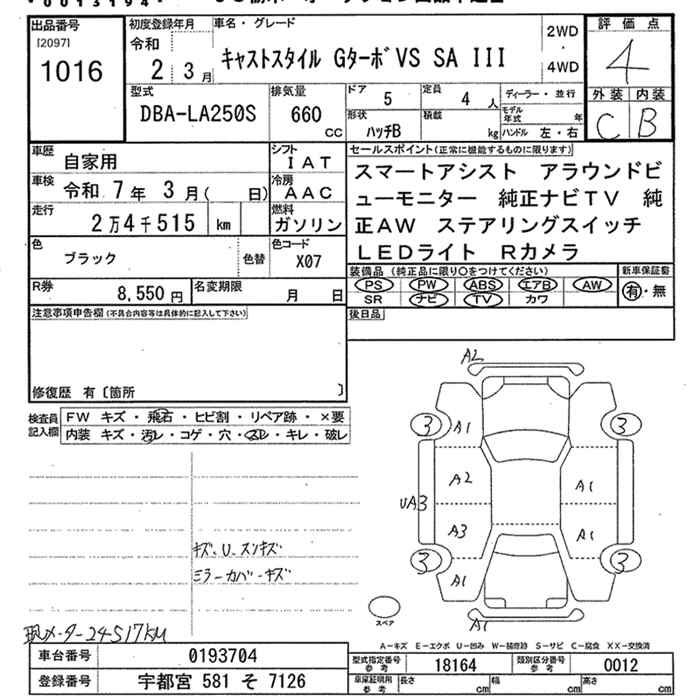 出品番号
[2097]
1016
初度登録年月
令和
2 3月
車名・グレード
キャストスタイル GターボVS SA III
2WD
・
4WD
評価点
4
外装 内装
C B
型式
DBA-LA250S
排気量
660
CC
ドア
5
定員
4 人
ディーラー・並行
形状
ハッチB
積載
kg
モデル
年式 年
ハンドル 左・右
車歴
自家用
シフト
IAT
車検
令和 7年 3月( 日)
冷房
AAC
走行
2万4千515 km
燃料
ガソリン
色
ブラック
色替
色コード
X07
セールスポイント(正常に機能するものに限ります)
スマートアシスト アラウンドビ
ューモニター 純正ナビTV 純
正AW ステアリングスイッチ
LEDライト Rカメラ
R券
8,550円
名変期限
月 日
装備品 (純正品に限り○をつけてください)
PS PW ABS エアB AW
SR ナビ TV カワ
新車保証書
有・無
注意事項申告欄(不具合内容等は具体的に記入して下さい)
後日品
修復歴 有〔箇所 〕
検査員
記入欄
FW キズ・飛石・ヒビ割・リペア跡・×要
内装 キズ・汚レ・コゲ・穴・スレ・キレ・破レ
A2
3 A1 3
A2 A1
UA3
A3 A1
3 A1 3
A1
スペア
キズ、U、スンキズ
ミラーカバーキズ
現メーター24517KM
A-キズ E-エクボ U-凹み W-補修跡 S-サビ C-腐食 XX-交換済
車台番号
0193704
型式指定番号
参考
18164
類別区分番号
参考
0012
登録番号
宇都宮 581 そ 7126
車庫証明用
参考
長さ cm
幅 cm
高さ cm